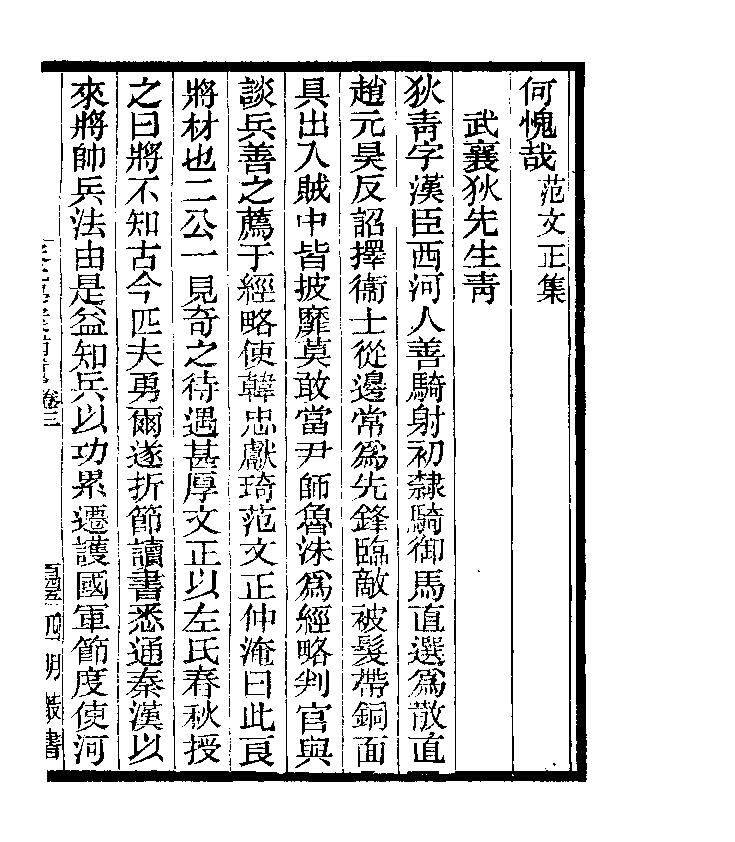 何愧哉 范文正集
武襄狄先生青
狄青字漢臣西河人善騎射初隸騎御馬直選爲散直
趙元昊反詔擇衞士從邊常爲先鋒臨敵被髮帶銅面
具出入賊中皆披靡莫敢當尹師魯洙爲經略判官與
談兵善之薦于經略使韓忠獻琦范文正仲淹曰此良
將材也二公一見奇之待遇甚厚文正以左氏春秋授
之曰將不知古今匹夫勇爾遂折節讀書悉通秦漢以
來將帥兵法由是益知兵以功累遷護國軍節度使河
卷三
四明叢書